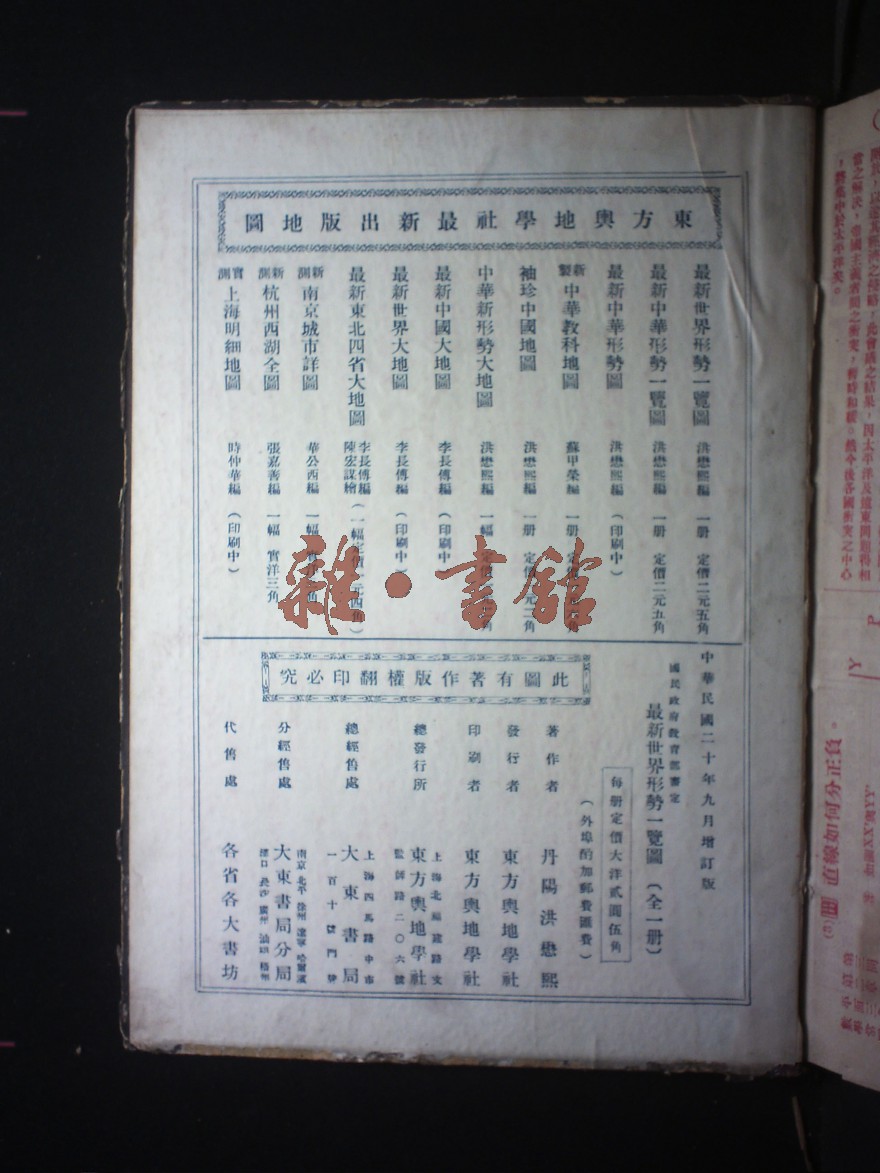 東方輿地學社最新出版地圖
最新世界形勢一覽圖 洪懋熙編 一册 定價二元五角
最新中華形勢一覽圖 洪懋熙編 一册 定價二元五角
最新中華形勢圖 洪懋熙編 （印刷中）
新製中華教科地圖 蘇甲榮編 一册
袖珍中國地圖 洪懋熙編 一册
中華新形勢大地圖 洪懋熙編 一幅
最新中國大地圖 李長傅編 （印刷中）
最新世界大地圖 李長傅編 （印刷中）
最新東北四省大地圖 李長傅編 陳宏謀繪 （一幅定價一元四角）
新測南京城市詳圖 華公西編 一幅
新測杭州西湖全圖 張嘉善編 一幅 實洋三角
實測上海明細地圖 時仲華編 （印刷中）
雜·書館
中華民國二十年九月增訂版
國民政府教育部審定
最新世界形勢一覽圖（全一册）
每册定價大洋貳圓伍角
（外埠酌加郵費匯費）
此圖有著作版權翻印必究
著作者 丹陽洪懋熙
發行者 東方輿地學社
印刷者 東方輿地學社
總發行所 上海北福建路文監師路二〇六號 東方輿地學社
總經售處 上海四馬路中市一百十號門牌 大東書局
分經售處 南京 北平 徐州 遼寧 哈爾濱 漢口 長沙 廣州 汕頭 梧州 大東書局分局
代售處 各省各大書坊
當之解決，帝國主義者間之衝突，暫時和緩。然今後各國衝突之中心
，將集中於太平洋矣。
直線如何分正負。